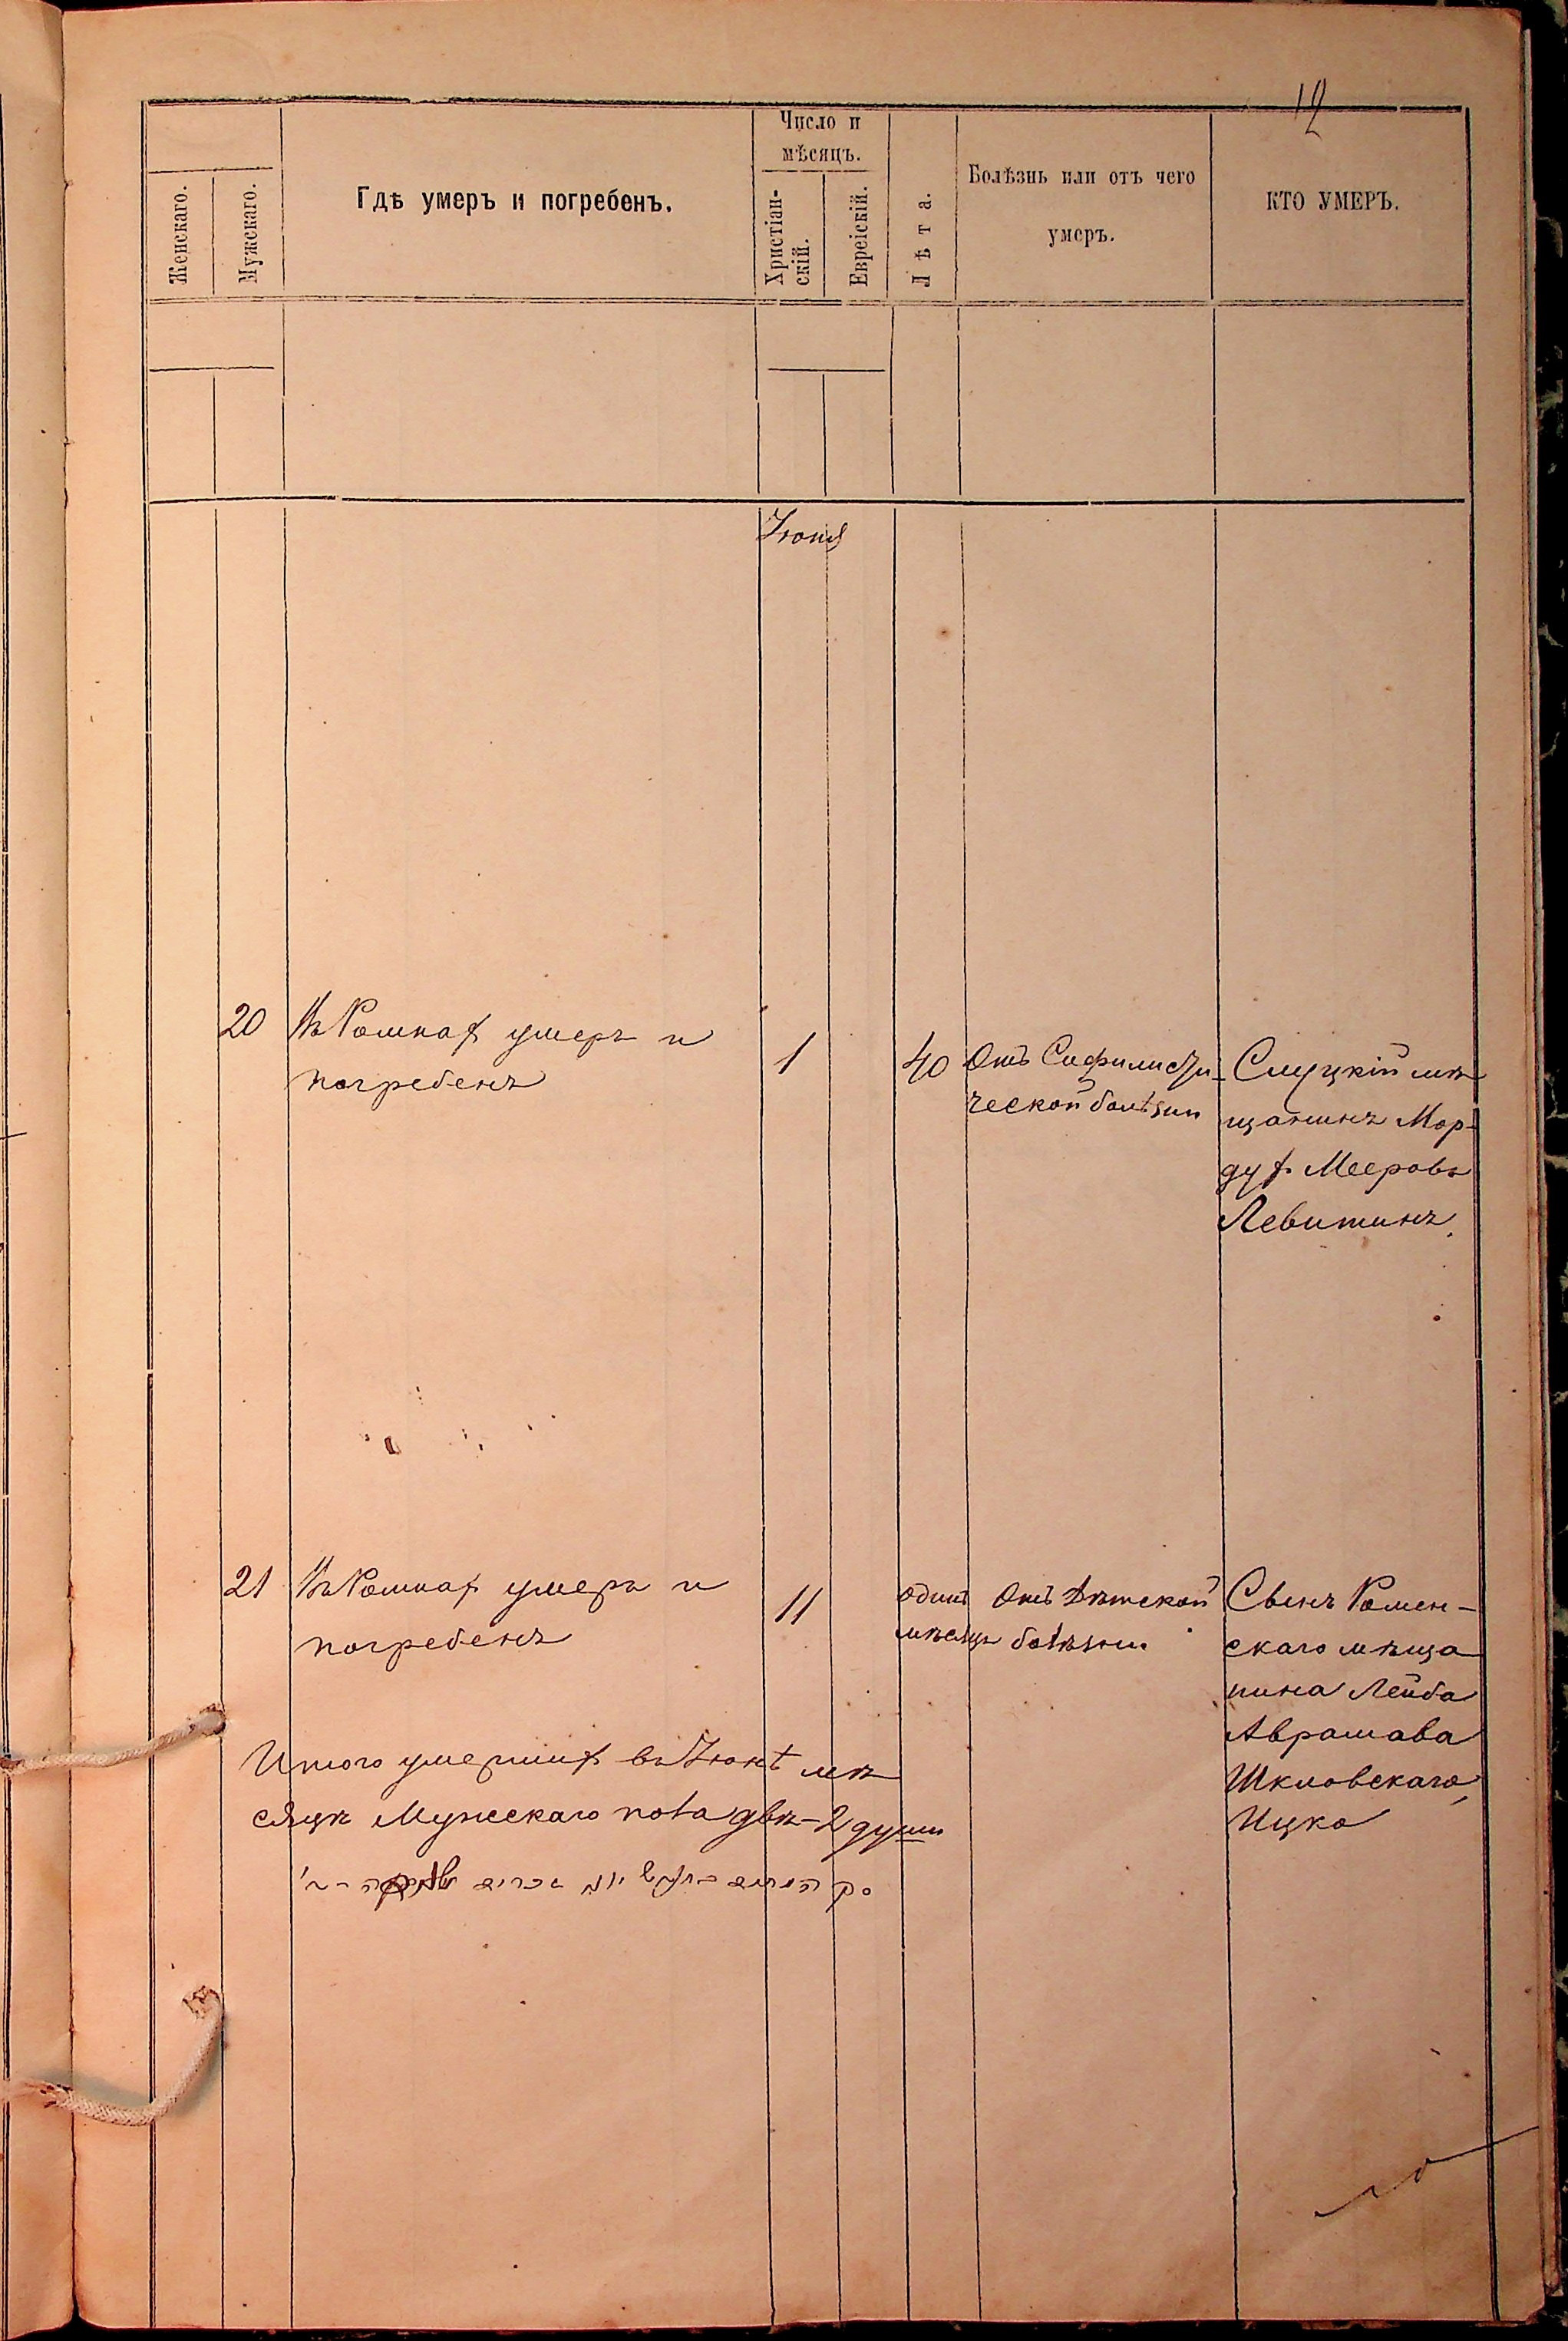 12
Женскаго.
Мужскаго.
Гдѣ умеръ и погребенъ.
Число и
мѣсяцъ.
Христіан-
скій.
Еврейскій.
Лѣта.
Болѣзнь или отъ чего
умеръ.
КТО УМЕРЪ.
Іюня
20
Въ Ромнах умеръ и
погребенъ
1
40
Отъ Сифилисти-
ческой болѣзни
Слуцкій мѣ
щанинъ Мор-
дух Мееровъ
Левитинъ.
21
Въ Ромнах умеръ и
погребенъ
11
одинъ
мѣсяцъ
Отъ дѣтской
болѣзни
Сынъ Ромен-
скаго мѣща
нина Лейба
Аврамова
Шкловскаго,
Ицко
Итого умерших въ Іюнѣ мѣ
сяцѣ Мужескаго пола двѣ-2 души